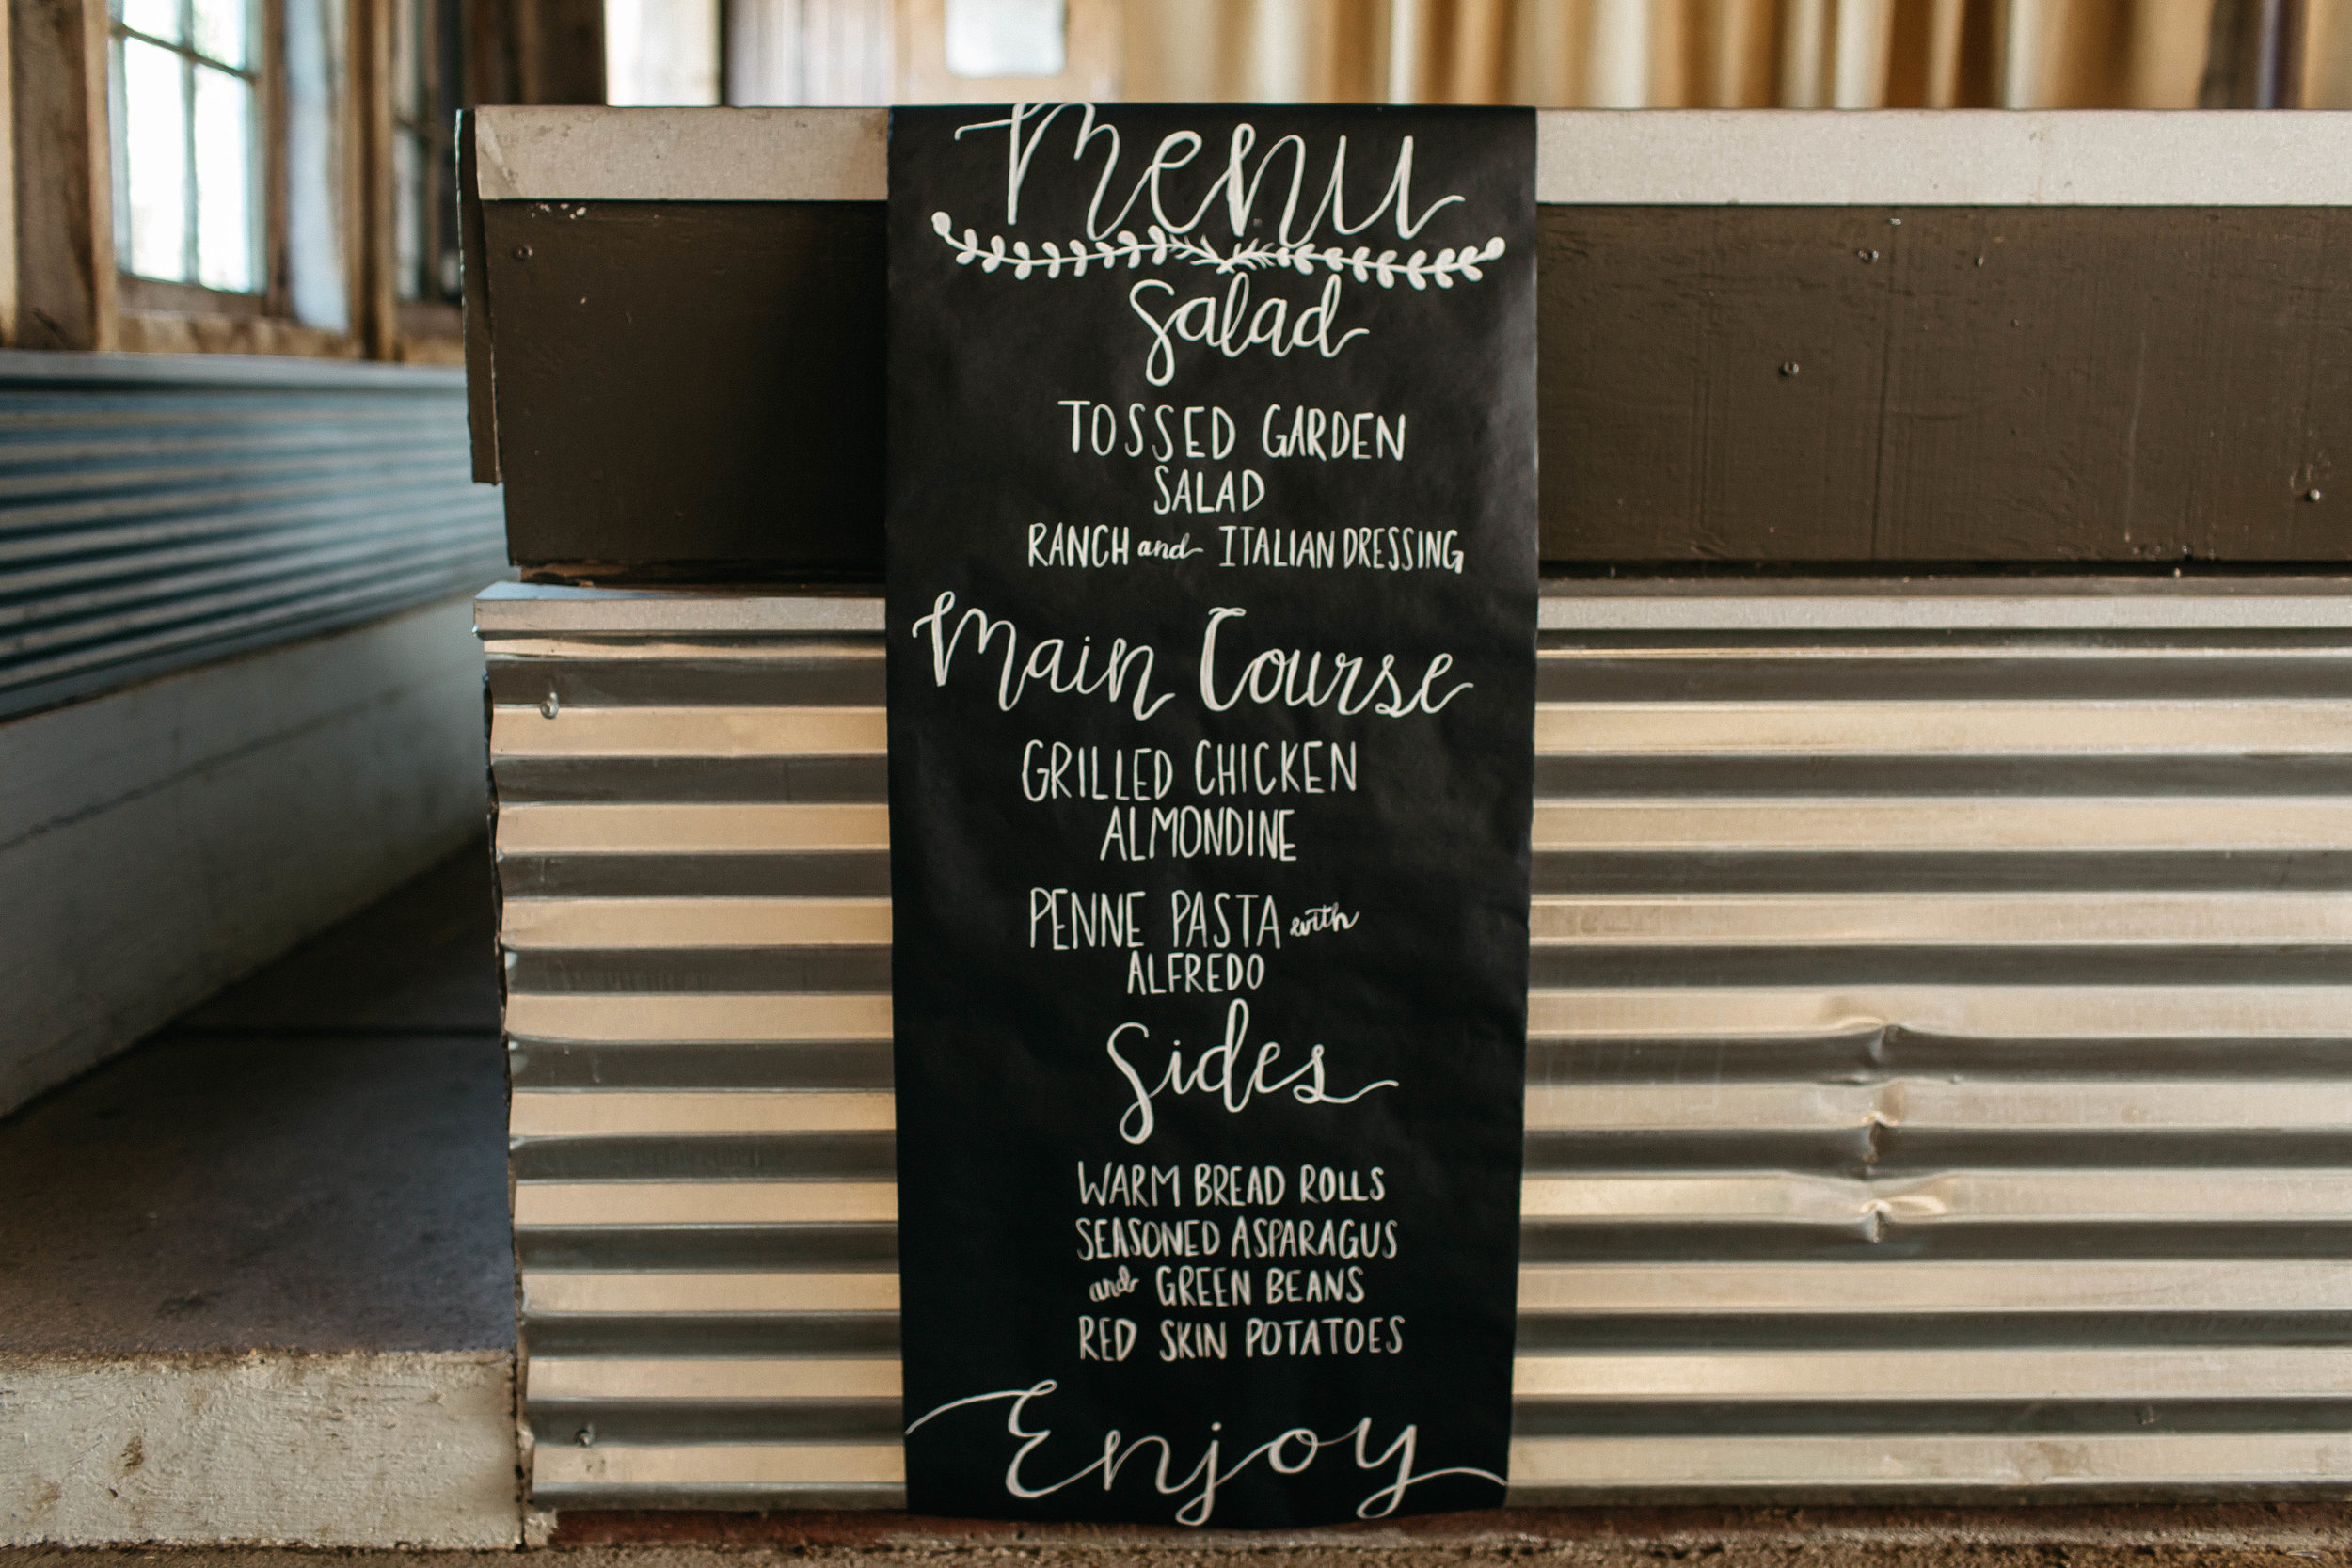 Menu
Salad
TOSSED GARDEN
SALAD
RANCH and ITALIAN DRESSING
Main Course
GRILLED CHICKEN
ALMONDINE
PENNE PASTA with
ALFREDO
Sides
WARM BREAD ROLLS
SEASONED ASPARAGUS
and GREEN BEANS
RED SKIN POTATOES
Enjoy